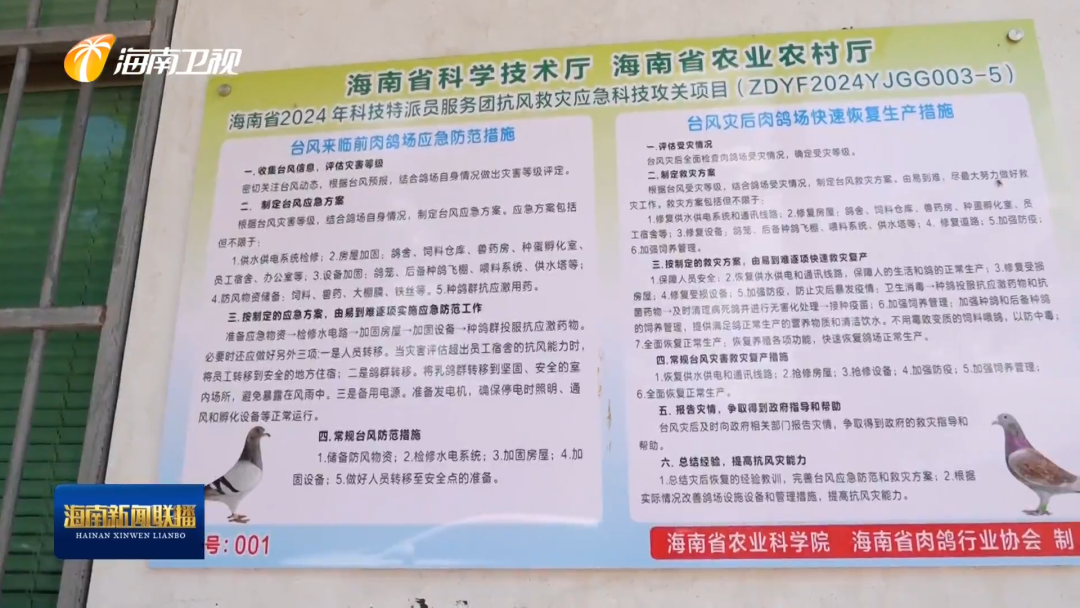 海南卫视
海南省科学技术厅 海南省农业农村厅
海南省2024年科技特派员服务团抗风救灾应急科技攻关项目（ZDYF2024YJGG003-5）
台风来临前肉鸽场应急防范措施
一.收集台风信息，评估灾害等级
密切关注台风动态，根据台风预报，结合鸽场自身情况做出灾害等级评定。
二. 制定台风应急方案
根据台风灾害等级，结合鸽场自身情况，制定台风应急方案。应急方案包括
但不限于：
1.供水供电系统检修；2.房屋加固：鸽舍、饲料仓库、兽药房、种蛋孵化室、
员工宿舍、办公室等；3.设备加固：鸽笼、后备种鸽飞棚、喂料系统、供水塔等；
4.防风物资储备：饲料、兽药、大棚膜、铁丝等。5.种鸽群抗应激用药。
三.按制定的应急方案，由易到难逐项实施应急防范工作
准备应急物资→检修水电路→加固房屋→加固设备→种鸽群投服抗应激药物。
必要时还应做好另外三项:一是人员转移。当灾害评估超出员工宿舍的抗风能力时，
将员工转移到安全的地方住宿；二是鸽群转移。将乳鸽群转移到坚固、安全的室
内场所，避免暴露在风雨中。三是备用电源。准备发电机，确保停电时照明、通
风和孵化设备等正常运行。
四.常规台风防范措施
1.储备防风物资；2.检修水电系统；3.加固房屋；4.加
固设备；5.做好人员转移至安全点的准备。
台风灾后肉鸽场快速恢复生产措施
一.评估受灾情况
台风灾后全面检查肉鸽场受灾情况，确定受灾等级。
二.制定救灾方案
根据台风受灾等级，结合鸽场受灾情况，制定台风救灾方案。由易到难，尽最大努力做好救
灾工作。救灾方案包括但不限于：
1.修复供水供电系统和通讯线路；2.修复房屋：鸽舍、饲料仓库、兽药房、种蛋孵化室、员
工宿舍等；3.修复设备：鸽笼、后备种鸽飞棚、喂料系统、供水塔等；4.修复道路；5.加强防疫；
6.加强饲养管理。
三.按制定的救灾方案，由易到难逐项快速救灾复产
1.保障人员安全；2.恢复供水供电和通讯线路，保障人的生活和鸽的正常生产；3.修复受损
房屋；4.修复受损设备；5.加强防疫，防止灾后暴发疫情：卫生消毒→种鸽投服抗应激药物和抗
菌药物→及时清理病死鸽并进行无害化处理→接种疫苗；6.加强饲养管理：加强种鸽和后备种鸽
的饲养管理，提供满足鸽正常生产的营养物质和清洁饮水。不用霉败变质的饲料喂鸽，以防中毒；
7.全面恢复正常生产：恢复养殖各项功能，快速恢复鸽场正常生产。
四.常规台风灾害救灾复产措施
1.恢复供水供电和通讯线路；2.抢修房屋；3.抢修设备；4.加强防疫；5.加强饲养管理；
6.全面恢复正常生产。
五. 报告灾情，争取得到政府指导和帮助
台风灾后及时向政府相关部门报告灾情，争取得到政府的救灾指导和
帮助。
六. 总结经验，提高抗风灾能力
1.总结灾后恢复的经验教训，完善台风应急防范和救灾方案；2.根据
实际情况改善鸽场设施设备和管理措施，提高抗风灾能力。
海南新闻联播
HAINAN XINWEN LIANBO
号：001
海南省农业科学院 海南省肉鸽行业协会 制